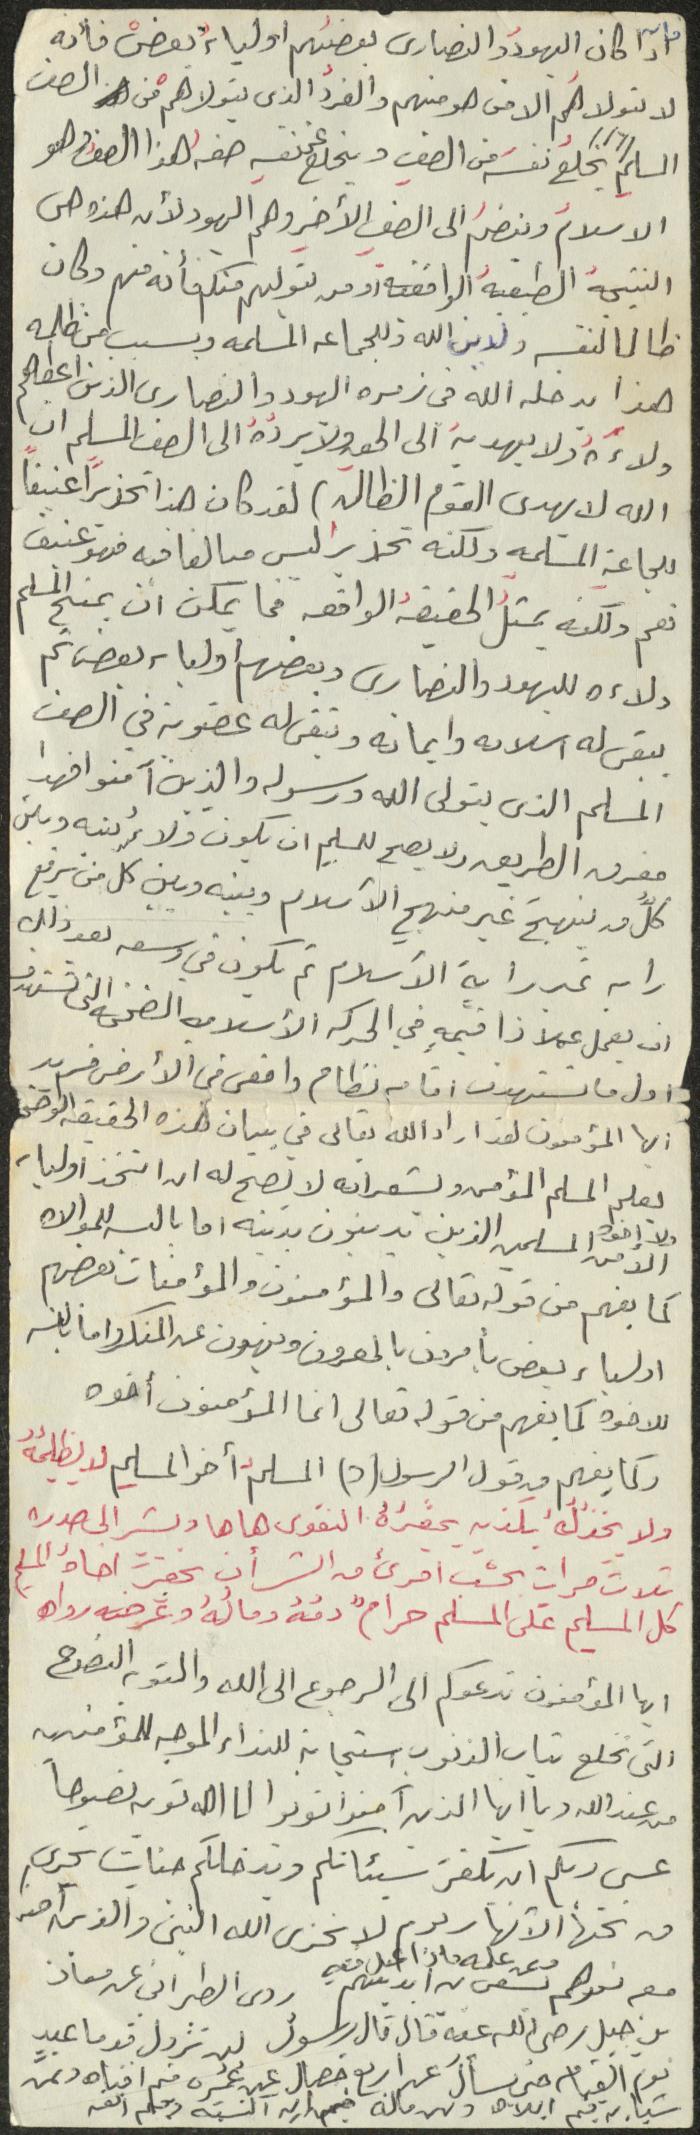 اذا كان اليهود والنصارى بعضهم اولياء بعض فأنه
لا يتولاهم الا من هو منهم والفرد الذى يتولاهم من الصف
المسلم يخلع نفسه من الصف ويخلع عن نفسه صفه هذا الصف وهو
الاسلام وينضم الى الصف الأخر وهم اليهود لأن هذه هى
النتيجة الطبيعية الواقعية ومن يتولهم منكم فأنه منهم وكان
ظالما لنفسه ولدين الله وللجماعه المسلمه وبسبب من ظلمه
هذا يدخله الله فى زمره اليهود والنصارى الذين اعطاهم
ولاءه ولا يهديه الى الحق ولا يرده الى الصف المسلم ان
الله لا يهدى القوم الظالمين) لقد كان هذا تحذيراً عنيفاً
للجماعة المسلمه ولكنه تحذير ليس مبالغا فيه فهو عنيف
نعم ولكنه يمثل الحقيقة الواقعه فما يمكن ان يمنح المسلم
ولاءه لليهود والنصارى وبعضهم أولياء بعض ثم
يبقى له اسلامه وايمانه وتبقى له عضويته في الصف
المسلم الذى يتولى الله ورسوله والذين آمنوا فهذا
مفرق الطريق ولا يصح للمسلم ان يكون ولاء بينه وبين
كل من ينهج غير منهج الأسلام وبينه وبين كل من يرفع
رايه غير راية الأسلام ثم يكون في وسعه بعد ذلك
ان يعمل عملا ذا قيمه في الحركه الأسلاميه الضخمه التى تستهدف
اول ما تستهدف اقامه نظام واقعى فى الأرض فريد
ايها المؤمنون لقد اراد الله تعالى في بيان هذه الحقيقه
يعلم المسلم المؤمن ويشعر انه لا يصح له ان اتخذ اولياء
ولا إخوه
الا من المسلمين الذين يدينون بدينه اما بالنسبه للموالاه
كما يفهم من قوله تعالى والمؤمنون والمؤمنات بعضهم
اولياء بعض يأمرون بالمعروف وينهون عن المنكر واما بالنسبه
للاخوه كما يفهم من قوله تعالى انما المؤمنون أخوه
وكما يفهم من قول الرسول (ص) المسلم أخو المسلم لا يظلمه
ولا يخذله ولا يكذبه ولا يحقره التقوى هاهنا ويشير الى صدره
ثلاث مرات بحسب امرئ من الشر أن يحقر اخاه المسلم
كل المسلم على المسلم حرام دمه وماله وعرضه رواه
ايها المؤمنون ندعوكم الى الرجوع الى الله والتوبه النصوح
التى تخلع ثياب الذنوب استجابة للنداء الموجه للمؤمنين
من عند الله ويا ايها الذين آمنوا توبوا الى الله توبه نصوحاً
عسى ربكم ان يكفر سيئاتكم ويدخلكم جنات تجرى
من تحتها الأنهار يوم لا يخزى الله النبى والذين آمنوا
وعن علمه ماذا عمل فيه
معه نورهم يسعى بين أيديهم روى الطبرانى عن معاذ
بن جبل رضى الله عنه قال قال رسول لن تزول قدما عبد
يوم القيامه حتى يسأل عن اربع خصال عن عمره فيم افناه وعن
شبابه فيم ابلاه وعن ماله من اين اكتسبه وفيم انفقه